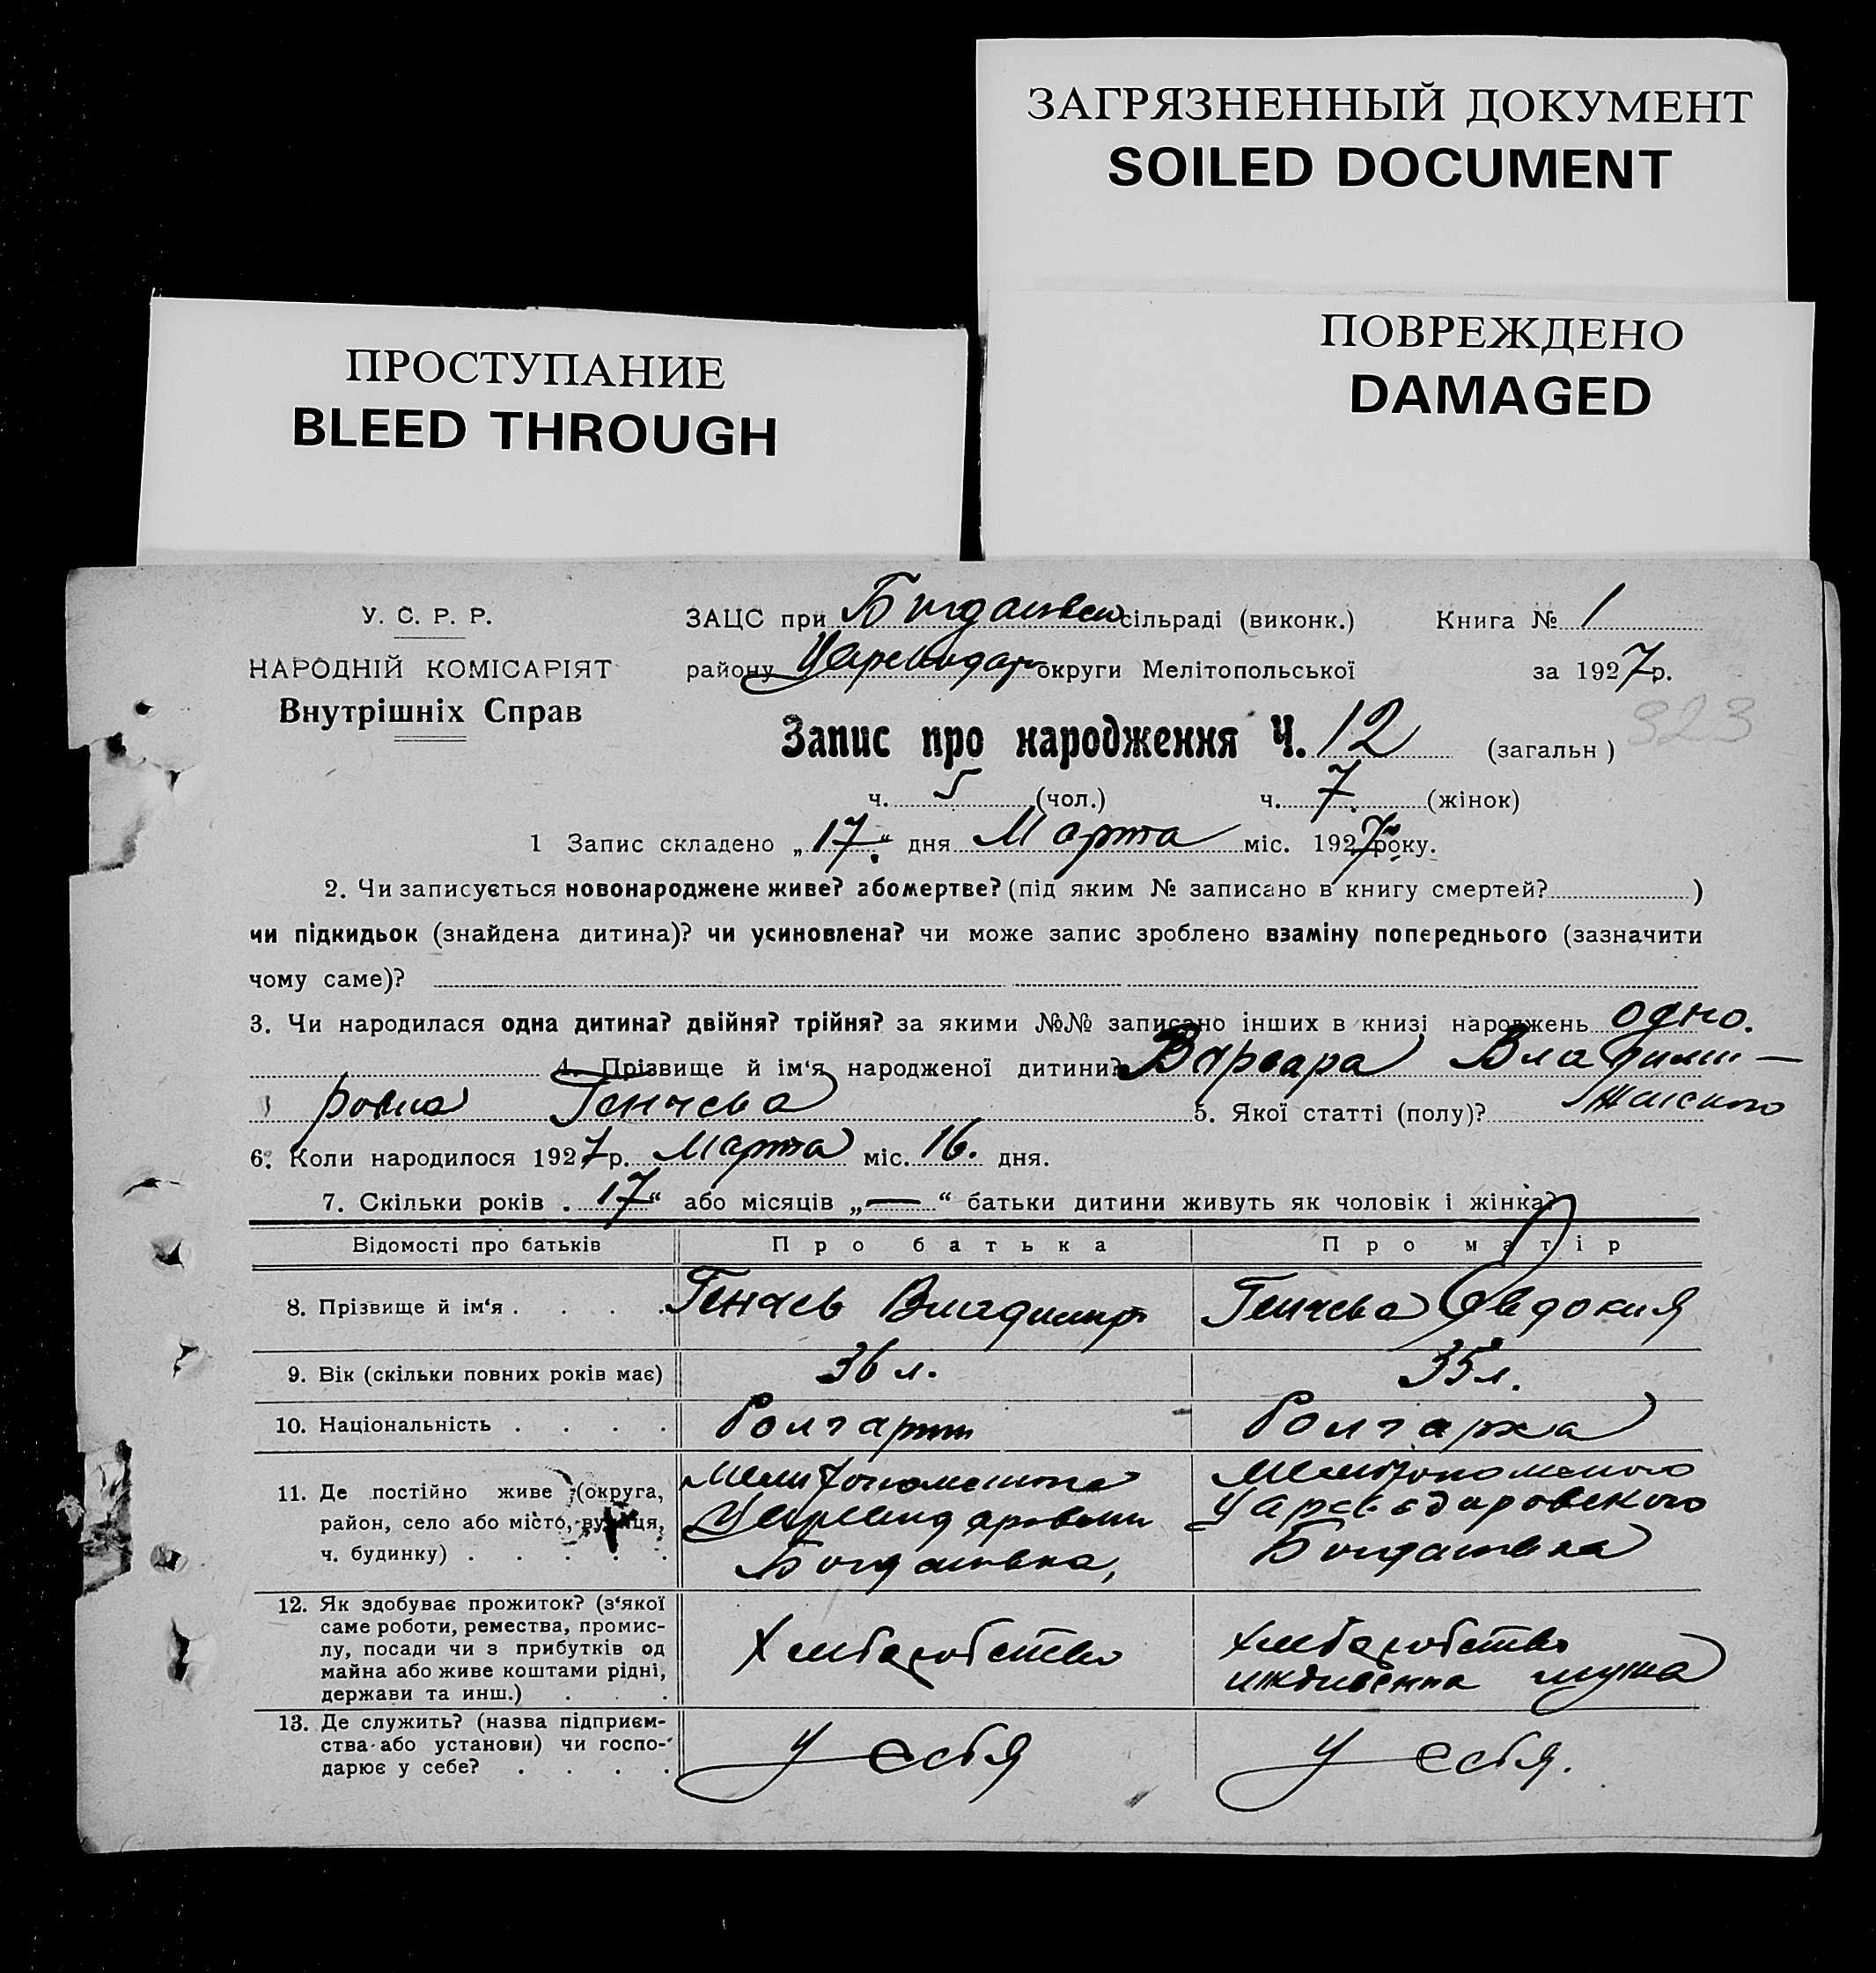 ЗАГРЯЗНЕННЫЙ ДОКУМЕНТ
SOILED DOCUMENT
ПОВРЕЖДЕНО
DAMAGED
ПРОСТУПАНИЕ
BLEED THROUGH
У. С. Р. Р.
НАРОДНІЙ КОМІСАРІЯТ
Внутрішніх Справ
ЗАЦС при сільраді (виконк.) Книга № 1
району округи Мелітопольської за 1927р.
323
Запис про народження Ч. 12 (загальн)
ч. 5 (чол.) ч. 7 (жінок)
1 Запис складено „17“ дня Марта міс. 1927 року.
2. Чи записується новонароджене живе? або мертве? (під яким № записано в книгу смертей? )
чи підкидьок (знайдена дитина)? чи усиновлена? чи може запис зроблено взаміну попереднього (зазначити
чому саме)?
3. Чи народилася одна дитина? двійня? трійня? за якими №№ записано інших в книзі народжень одно.
4. Прізвище й ім‘я народженої дитини? Варвара Владими—
ровна Генчева 5. Якої статті (полу)? Женского
6. Коли народилося 1927р. Марта міс. 16. дня.
7. Скільки років . 17“ або місяців „—“ батьки дитини живуть як чоловік і жінка?
Відомості про батьків Про батька Про матір
8. Прізвище й ім‘я . . . . Генчев Владимир Генчева Евдокия
9. Вік (скільки повних років має) 36 л. 35 л.
10. Національність . . . . Болгарин Болгарка
11. Де постійно живе (округа,
район, село або місто, вулиця,
ч. будинку) . . . . .
Богдановка,
Мелитопольского
Цареводаровского
Богдановка
12. Як здобуває прожиток? (з‘якої
саме роботи, ремества, промис-
лу, посади чи з прибутків од
майна або живе коштами рідні,
держави та инш.) . . .
Хлеборобство
Хлеборобство
иждивенка мужа
13. Де служить? (назва підприєм-
ства або установи) чи госпо-
дарює у себе? . . . .
У себя
У себя.